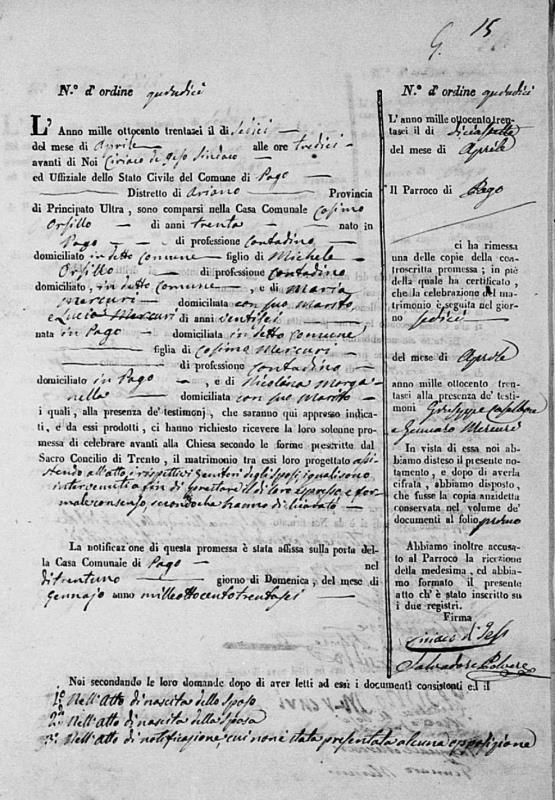 G. 15
N.º d'ordine quindici
L'Anno mille ottocento trentasei il di Sedici
del mese di Aprile alle ore tredici
avanti di Noi Ciriaco de Gesi Sindaco
ed Uffiziale dello Stato Civile del Comune di Pago
Distretto di Ariano Provincia
di Principato Ultra, sono comparsi nella Casa Comunale Cosimo
Orsillo di anni trenta nato in
Pago di professione contadino
domiciliato in detto comune figlio di Michele
Orsillo di professione contadino
domiciliato, in detto comune, e di Maria
Mercuri domiciliata con suo Marito
e Lucia Mercuri di anni ventisei
nata in Pago domiciliata in detto comune,
figlia di Cosimo Mercuri
di professione contadino
domiciliato in Pago, e di Nicolina Morga
nella domiciliata con suo Marito
i quali, alla presenza de' testimonj, che saranno qui appresso indica-
ti, e da essi prodotti, ci hanno richiesto ricevere la loro solenne pro-
messa di celebrare avanti alla Chiesa secondo le forme prescritte dal
Sacro Concilio di Trento, il matrimonio tra essi loro progettato assi
stendo all'atto i rispettivi Genitori degli Sposi, i quali sono
intervenuti a fin di prestare il di loro espresso, e for
male consenso, secondo che hanno dichiarato
La notificazione di questa promessa è stata affissa sulla porta del-
la Casa Comunale di Pago nel
dì trentuno giorno di Domenica, del mese di
Gennajo anno mille ottocento trentasei
N.º d'ordine quindici
L'anno mille ottocento tren-
tasei il di diciasette
del mese di Aprile
Il Parroco di Pago
ci ha rimessa
una delle copie della con-
troscritta promessa; in piè
della quale ha certificato,
che la celebrazione del ma-
trimonio è seguita nel gior-
no sedici
del mese di Aprile
anno mille ottocento tren-
tasei alla presenza de' testi-
moni Giuseppe
e Gennaro Mercuri
In vista di essa noi ab-
biamo disteso il presente no-
tamento, e dopo di averla
cifrata, abbiamo disposto,
che fusse la copia anzidetta
conservata nel volume de'
documenti al folio primo
Abbiamo inoltre accusa-
to al Parroco la ricezione
della medesima, ed abbia-
mo formato il presente
atto ch'è stato inscritto su
i due registri.
Firma
Ciriaco d Gesi
Salvadore Polvere
Noi secondando le loro domande dopo di aver letti ad essi i documenti consistenti ed il
1º Nell'Atto di nascita dello Sposo
2º Nell'Atto di nascita della Sposa
3º Nell'Atto di notificazione, cui non è stata presentata alcuna opposizione